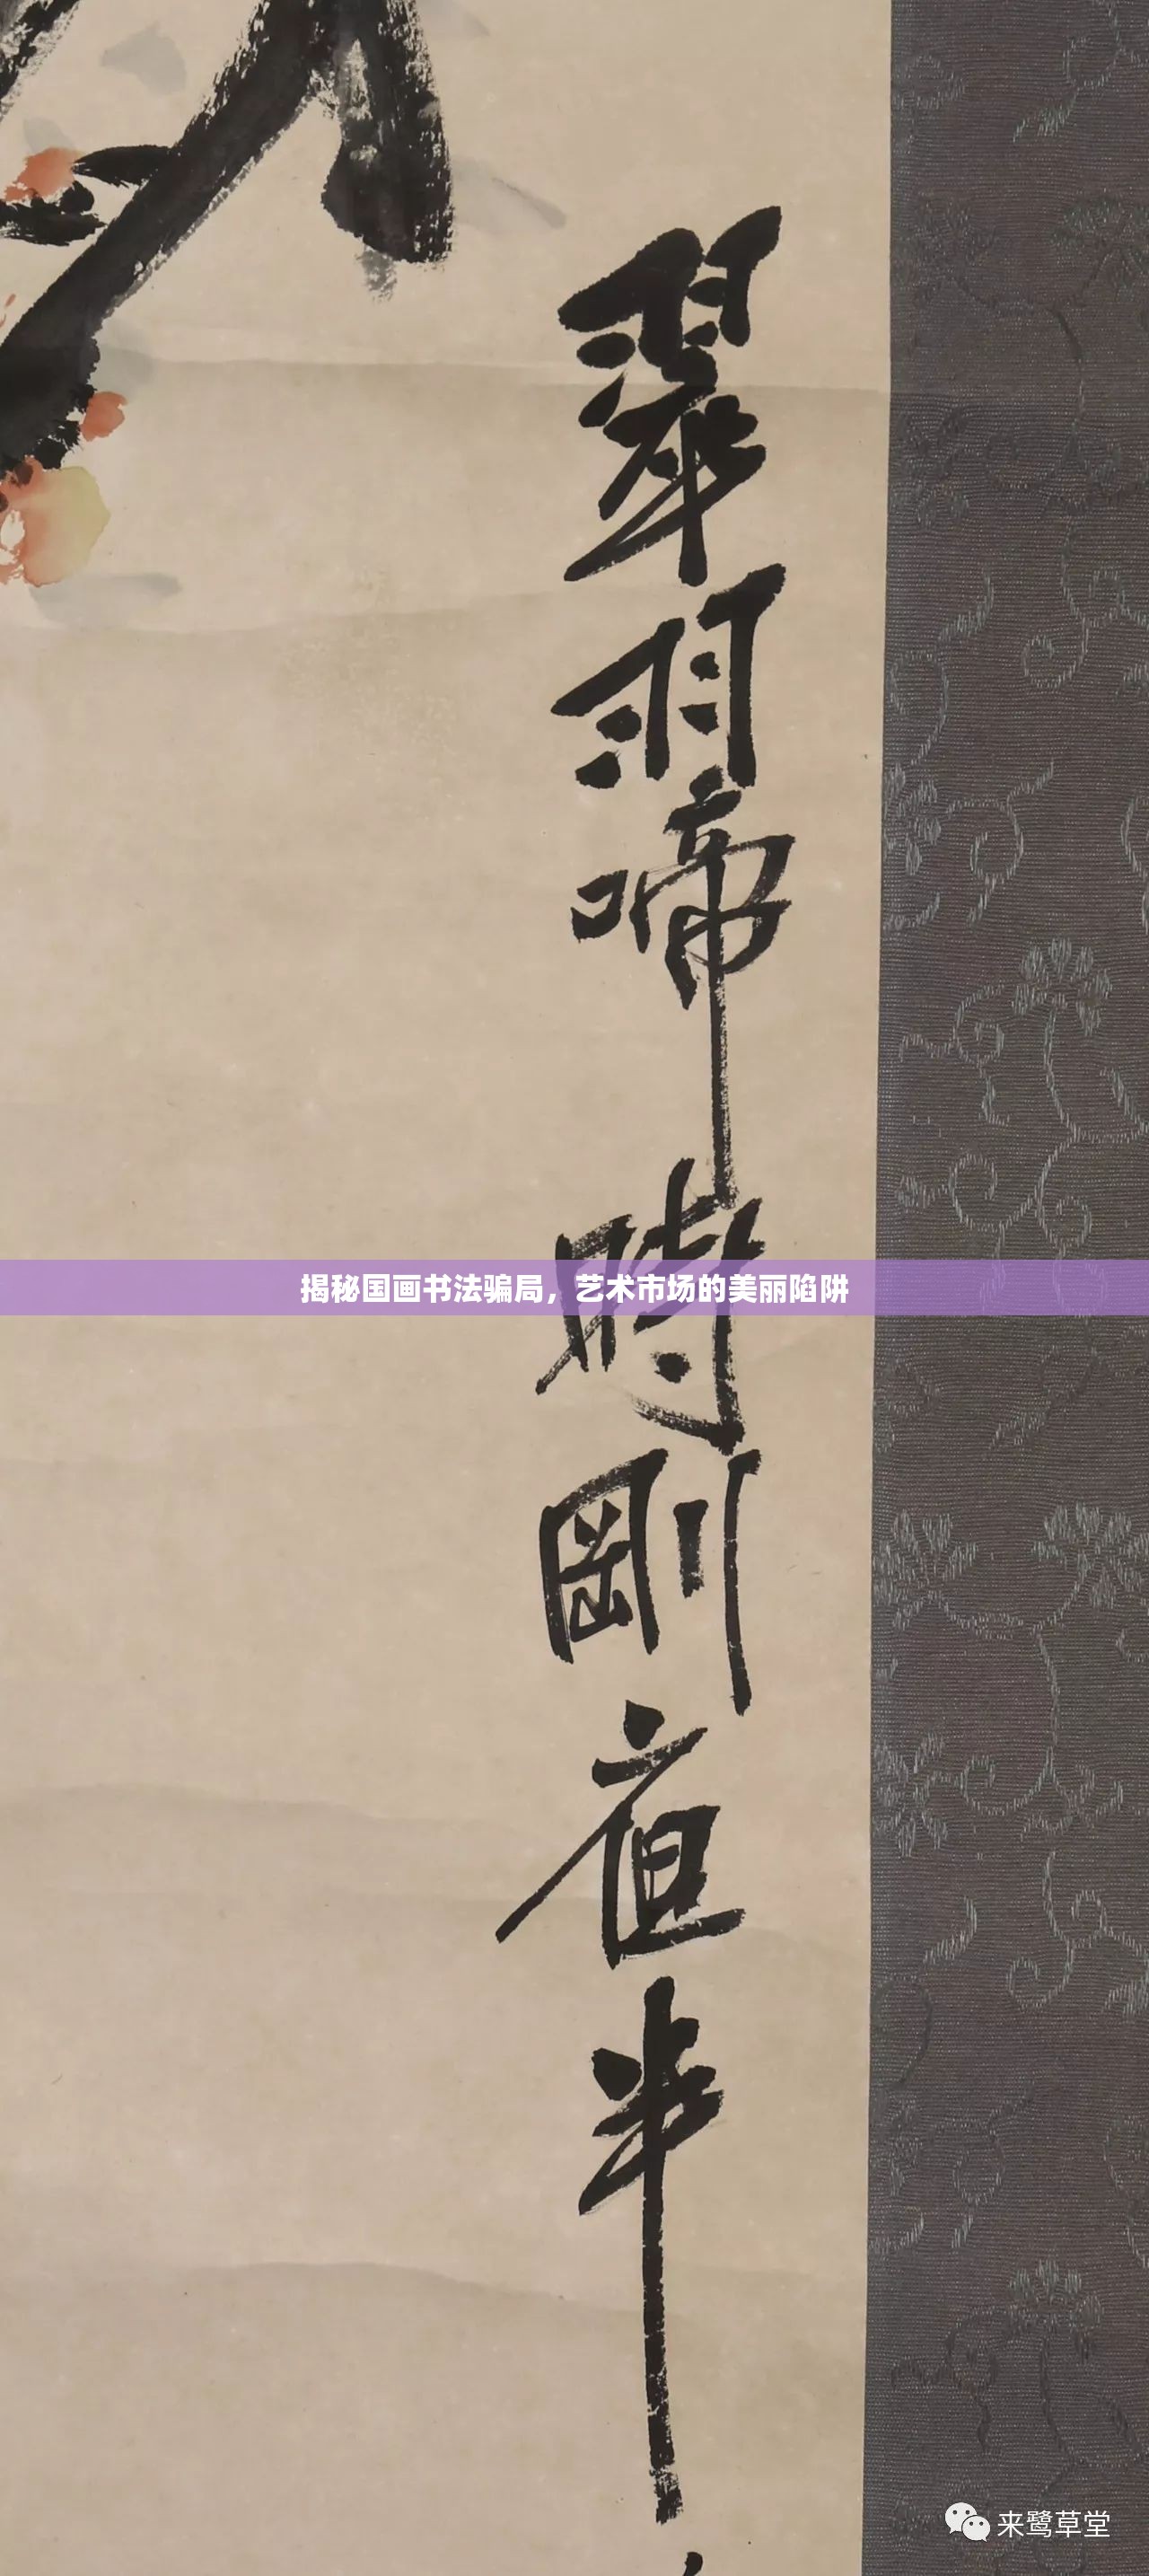 翠羽啼時剛夜半
揭秘国画书法骗局，艺术市场的美丽陷阱
来鹭草堂